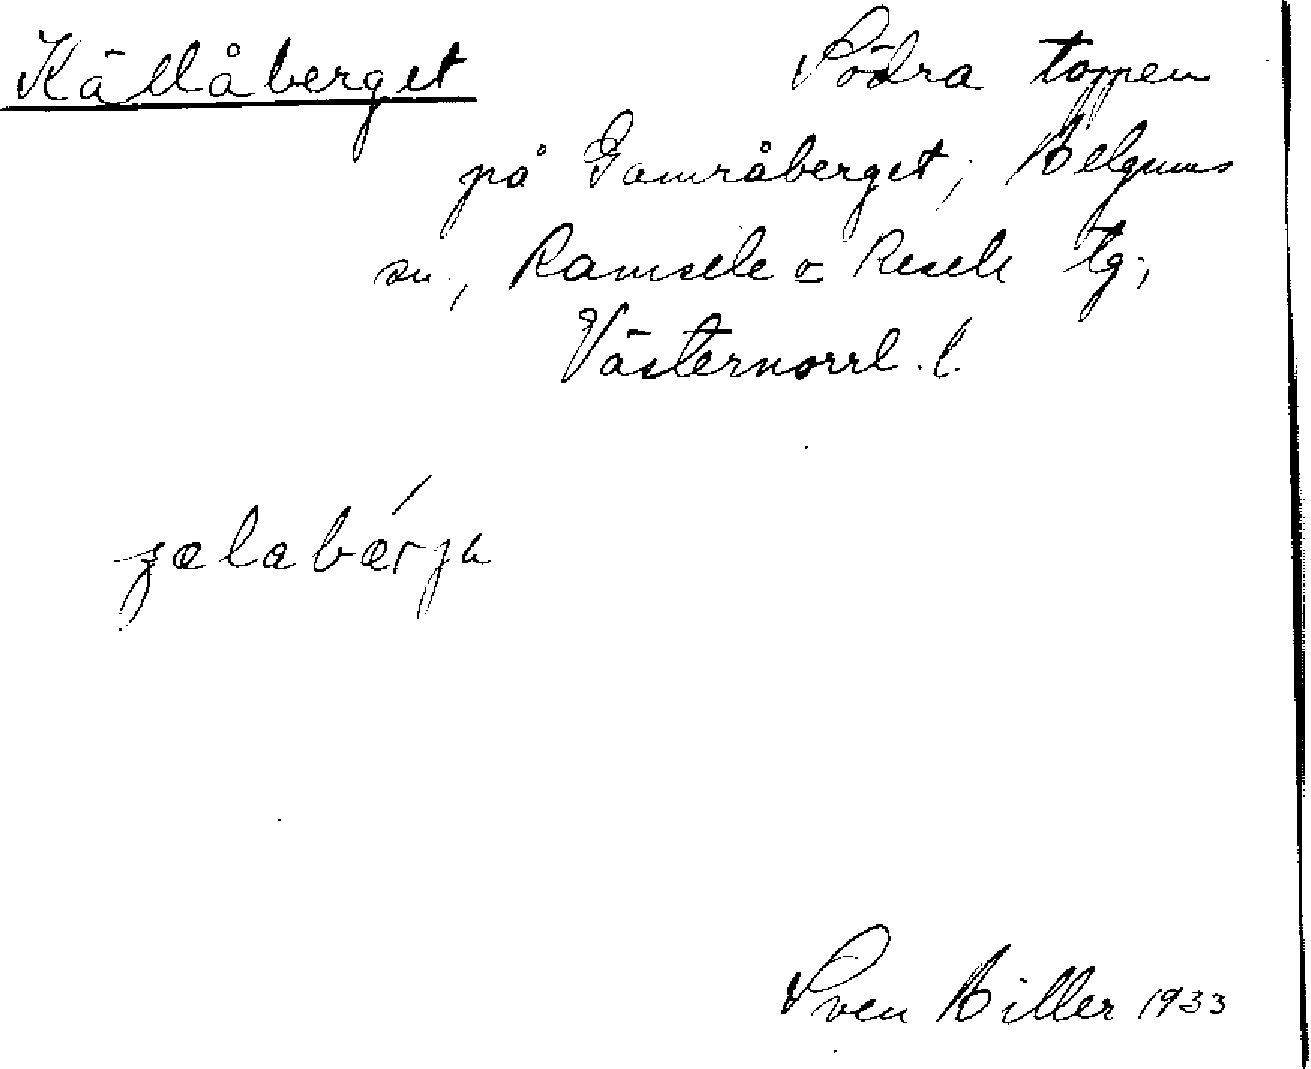 Källåberget Södra toppen
på Gamråberget; Helgums
sn, Ramsele o Resele tg;
Västernorrl. l.
Sven Hiller 1933